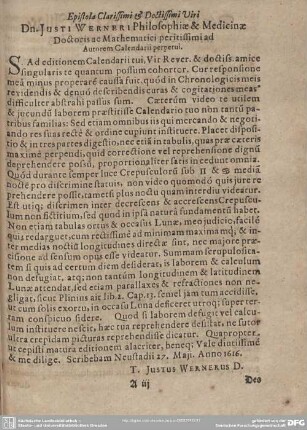 Epistola Clarissimi & Doctissimi Viri
Dn. JUSTI WERNERI Philosophiæ & Medicinæ
Doctoris ac Mathematici peritissimi ad
Autorem Calendarii perpetui.
SAd editionem Calendarii tui, Vir Rever. & doctiss. amice
singularis te quantum possum cohortor. Cur responsione
meâ minus properarê caussa fuit, quod in Chronologicis meis
revidendis & denuò describendis curas & cogitationes meas
difficulter abstrahi passus sum. Cæterùm video te utilem
& jucundũ laborem præstitisse Calendario tuo non tantũ pro
patribus familias: Sed etiam omnibus iis qui mercando & negotiando
res suas rectè & ordine cupiunt instituere. Placet dispositio,
& in tres partes digestio, nec erit in tabulis, quas præ cæteris
maximi expendi, quid correctione vel reprehensione dignũ
deprehendere possi, proportionaliter satis incedunt omnia.
Quòd durante semper luce Crepusculorũ sub II & ♋ media
nocte pro discrimine statuis, non video quomodò quis jure reprehendere
possit, amet si plus noctu quam interdiu videatur.
Est utiq; discrimen inter decrescens & accrescens Crepusculum
non fictitium, sed quod in ipsâ naturâ fundamentũ habet.
Non etiam tabulas ortus & occasus Lunæ, meo judicio, facilè
quis redarguet: cum rectissimè ad minimam maximamq; & inter
medias noctiũ longitudines directæ sint, nec majore præcisione
ad sensum opus esse videatur. Summam scrupulositatem
si quis ad certum diem desiderat, is laborem & calculum
non defugiat, atq; non tantùm longitudinem & latitudinem
Lunæ attendat, sed etiam parallaxes & refractiones non negligat,
sicut Plinius ait lib. 2. Cap. 13. semel jam tum accidisse,
ut cum solis exortu, in occasu Luna deficeret utroq; super terram
conspicuo sidere. Quod si laborem defugit vel calculum
instituere nescit, hæc tua reprehendere desistat, ne sutor
ultra crepidam picturas reprehendisse dicatur. Quapropter
ut cepisti matura editionem alacriter, heneq; Vale diutissimè
& me dilige. Scribebam Neustadii 27. Maji. Anno 1616.
T. JUSTUS WERNERUS D.
A iij
Deo